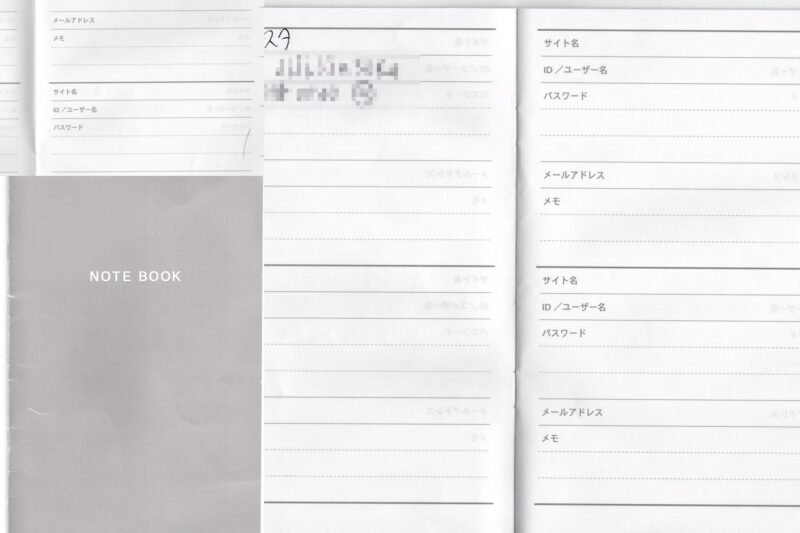 メールアドレス
メモ
サイト名
ID／ユーザー名
パスワード
NOTE BOOK
スタ
サイト名
ID／ユーザー名
パスワード
メールアドレス
メモ
サイト名
ID／ユーザー名
パスワード
メールアドレス
メモ